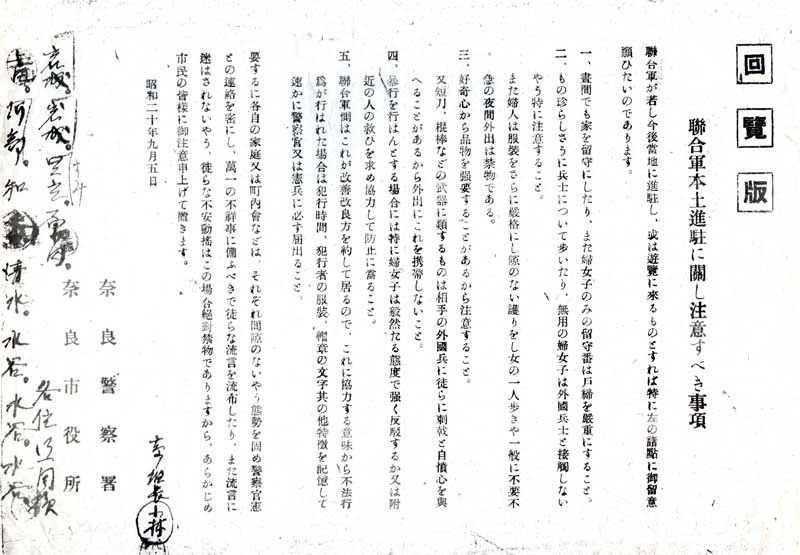 回覽版
聯合軍本土進駐に關し注意すべき事項
聯合軍が若し今後當地に進駐し、或は遊覽に來るものとすれば特に左の諸點に御留意
願ひたいのであります。
一、晝間でも家を留守にしたり、また婦女子のみの留守番は戸締を嚴重にすること。
二、もの珍らしさうに兵士について歩いたり、無用の婦女子は外國兵士と接觸しない
やう特に注意すること。
また婦人は服裝をさらに嚴格にし隙のない護りをし女の一人歩きや一般に不要不
急の夜間外出は禁物である。
三、好奇心から品物を强要することがあるから注意すること。
又短刀、棍棒などの武器に類するものは相手の外國兵に徒らに刺戟と自憤心を與
へることがあるから外出にこれを携帶しないこと。
四、暴行を行はんとする場合には特に婦女子は毅然たる態度で强く反駁するか又は附
近の人の救ひを求め協力して防止に當ること。
五、聯合軍側はこれが改善改良方を約して居るので、これに協力する意味から不法行
爲が行はれた場合は犯行時間、犯行者の服裝、帽章の文字其の他特徵を記憶して
速かに警察官又は憲兵に必ず届出ること。
要するに各自の家庭又は町內會などは、それぞれ間隙のないやう態勢を固め警察官憲
との連絡を密にし、萬一の不祥事に備ふべきで徒らな流言を流布したり、また流言に
迷はされないやう、徒らな不安動搖はこの場合絕對禁物でありますから、あらかじめ
市民の皆樣に御注意申上げて置きます。
昭和二十年九月五日
奈良警察署
奈良市役所
組長小林
清水。水谷。水谷。水谷。